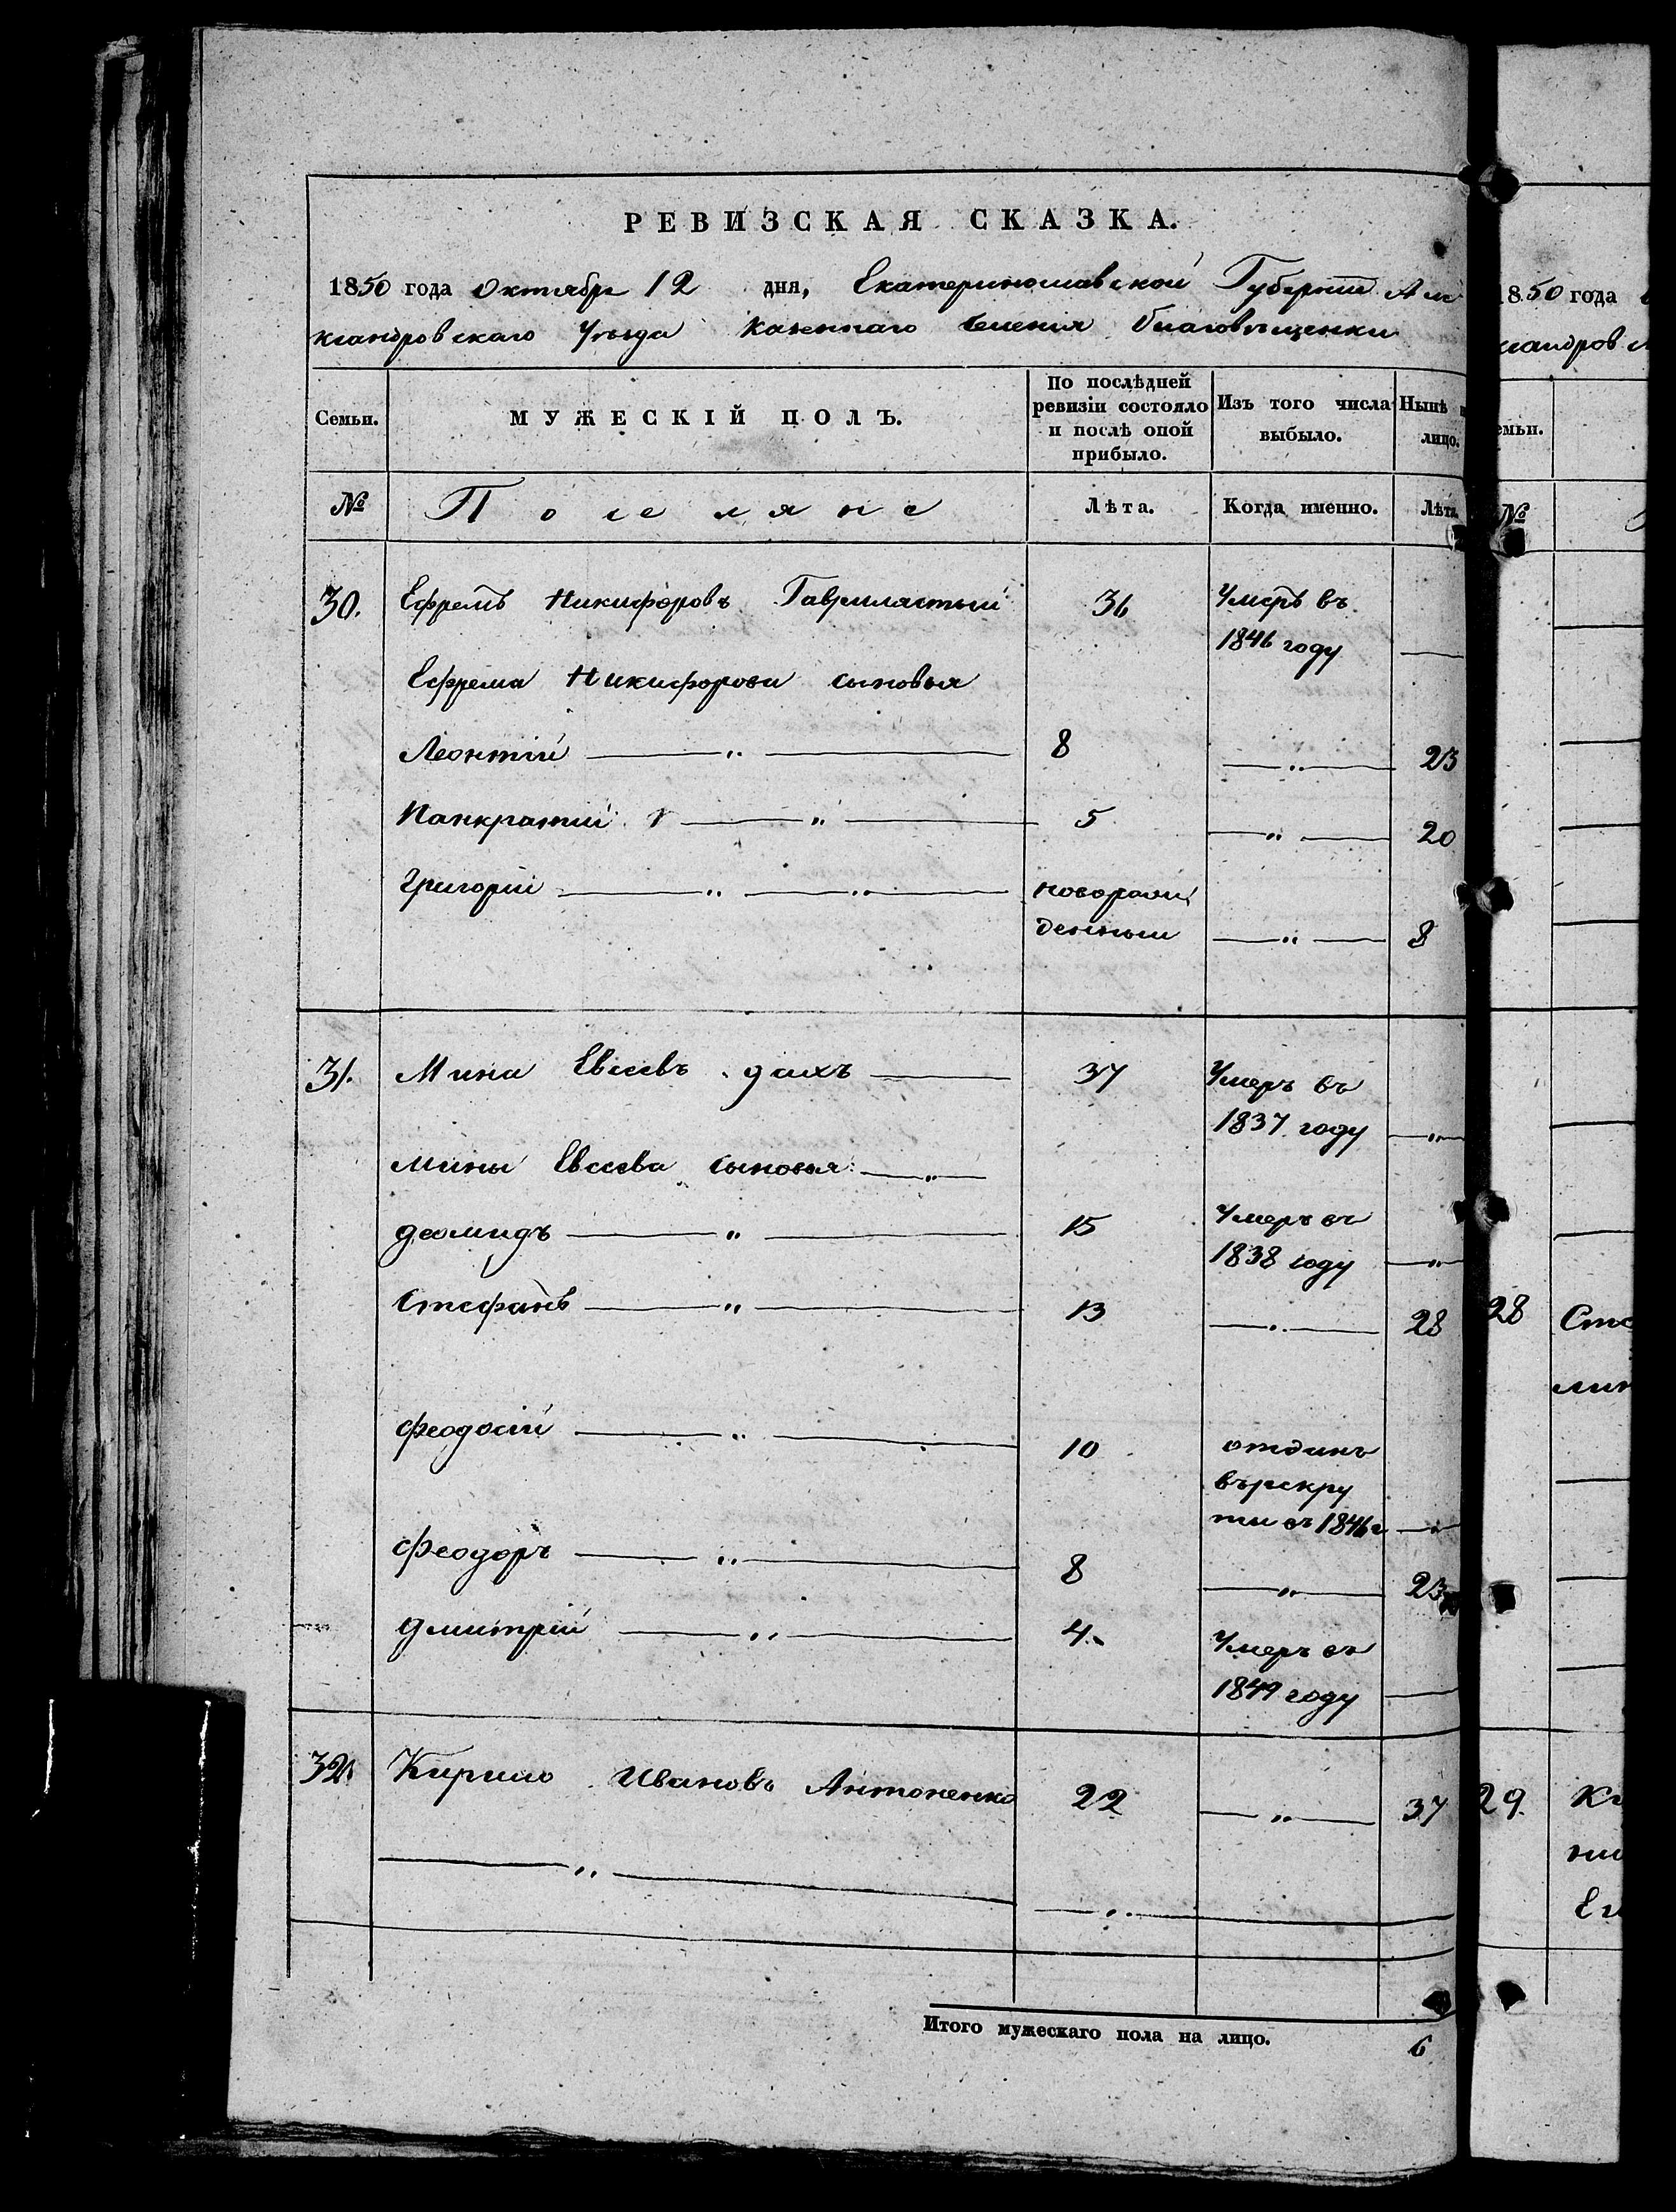 РЕВИЗСКАЯ СКАЗКА.
1850 года Октября 12 дня, Екатеринославской Губернiи Але
ксандровскаго Уѣзда Казеннаго Селенiя Благовѣщенки
Семьи.
МУЖЕСКIЙ ПОЛЪ.
По послѣдней
ревизiи состояло
и послѣ оной
прибыло.
Изъ того числа
выбыло.
Нынѣ н
лицо.
№
Поселяне
Лѣта.
Когда именно.
Лѣта.
30. Ефремъ Никифоровъ Гавриластый 36 Умеръ въ
1846 году —
Ефрема Никифорова сыновья
Леонтiй — „ — 8 — „ — 23
Панкратiй — „ — 5 — „ — 20
Григорiй — „ — „ — новорож
денный — „ — 8
31. Мина Евсеевъ — 37 Умеръ въ
1837 году — „ —
Мины Евсеева сыновья — „ —
Деомидъ — „ — 15 Умеръ въ
1838 году — „ —
Стефанъ — „ — 13 — „ — 28
Феодосiй — „ — 10 отданъ
въ рекру
ты въ 1846 г — „ —
Феодоръ — „ — 8 — „ — 23
Дмитрiй — „ — 4 Умеръ въ
1849 году —
32. Кирило Ивановъ Антоненко 22 — „ — 37
— „ —
— „ —
Итого мужескаго пола на лицо. 6
1850 года
ксандров
емьи.
№
28 Сте
29. Ки